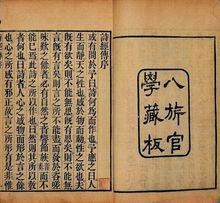 八旂官
學藏板
詩經傳序
或有問於予曰詩何爲而作也予應之曰人
生而靜天之性也感於物而動性之欲也夫
既有欲矣則不能無思既有思矣則不能無
言既有言矣則言之所不能盡而發於咨嗟
咏歎之餘者必有自然之音響節族而不
能已焉此詩之所以作也曰然則其所以教
者何也曰詩者人心之感物而形於言之餘
也心之所感有邪正故言之所形有是非惟